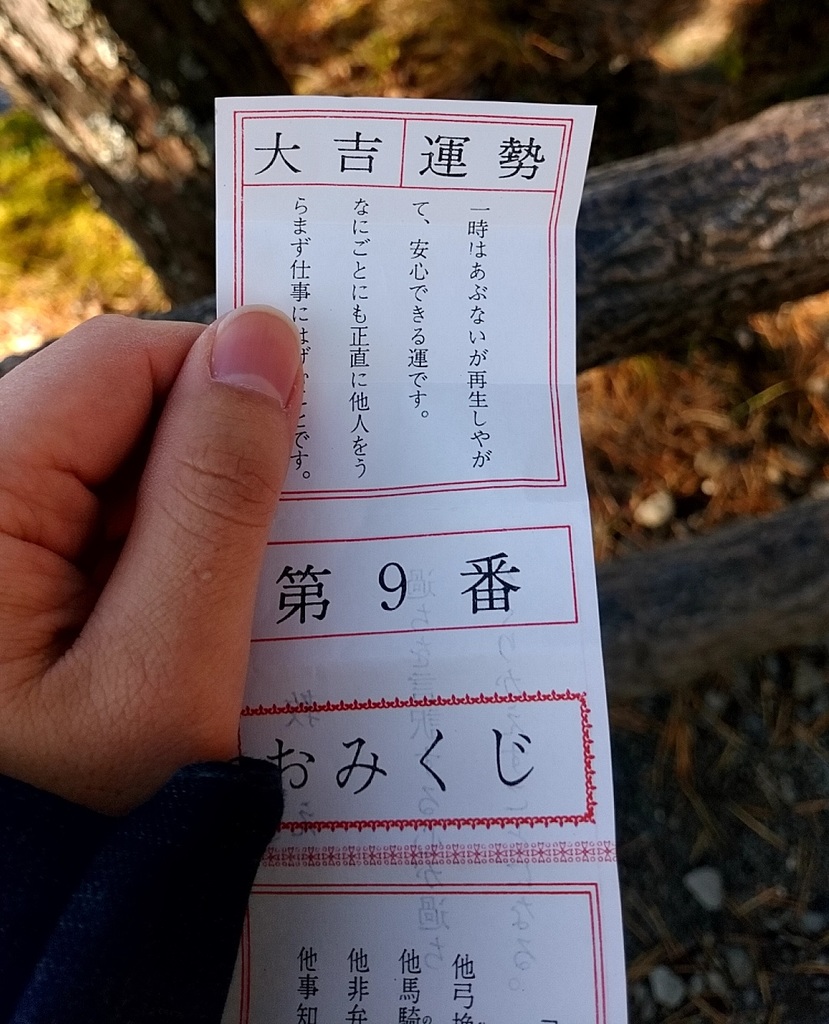 大吉 運勢
一時はあぶないが再生しやが
て、安心できる運です。
なにごとにも正直に他人をう
らまず仕事にはげ ことです。
第9番
おみくじ
他弓
他馬騎
他非弁
他事知